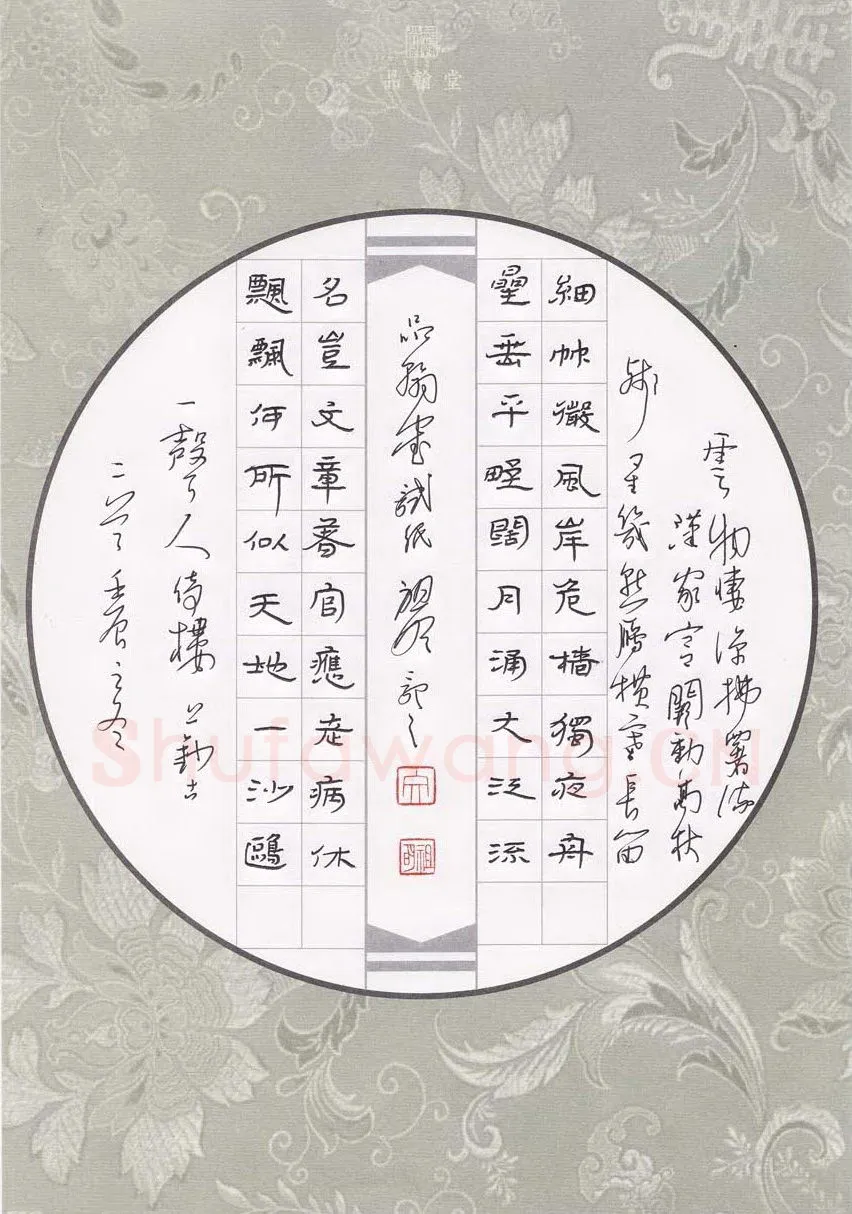 品翰堂
雲物淒涼拂署流
漢家宮闕動高秋
殘星幾點雁橫塞長笛
細艸微風岸危檣獨夜舟
星垂平野闊月涌大江流
品翰堂試紙 記之
名豈文章著官應老病休
飄飄何所似天地一沙鷗
一聲人倚樓
Shufawang.CN